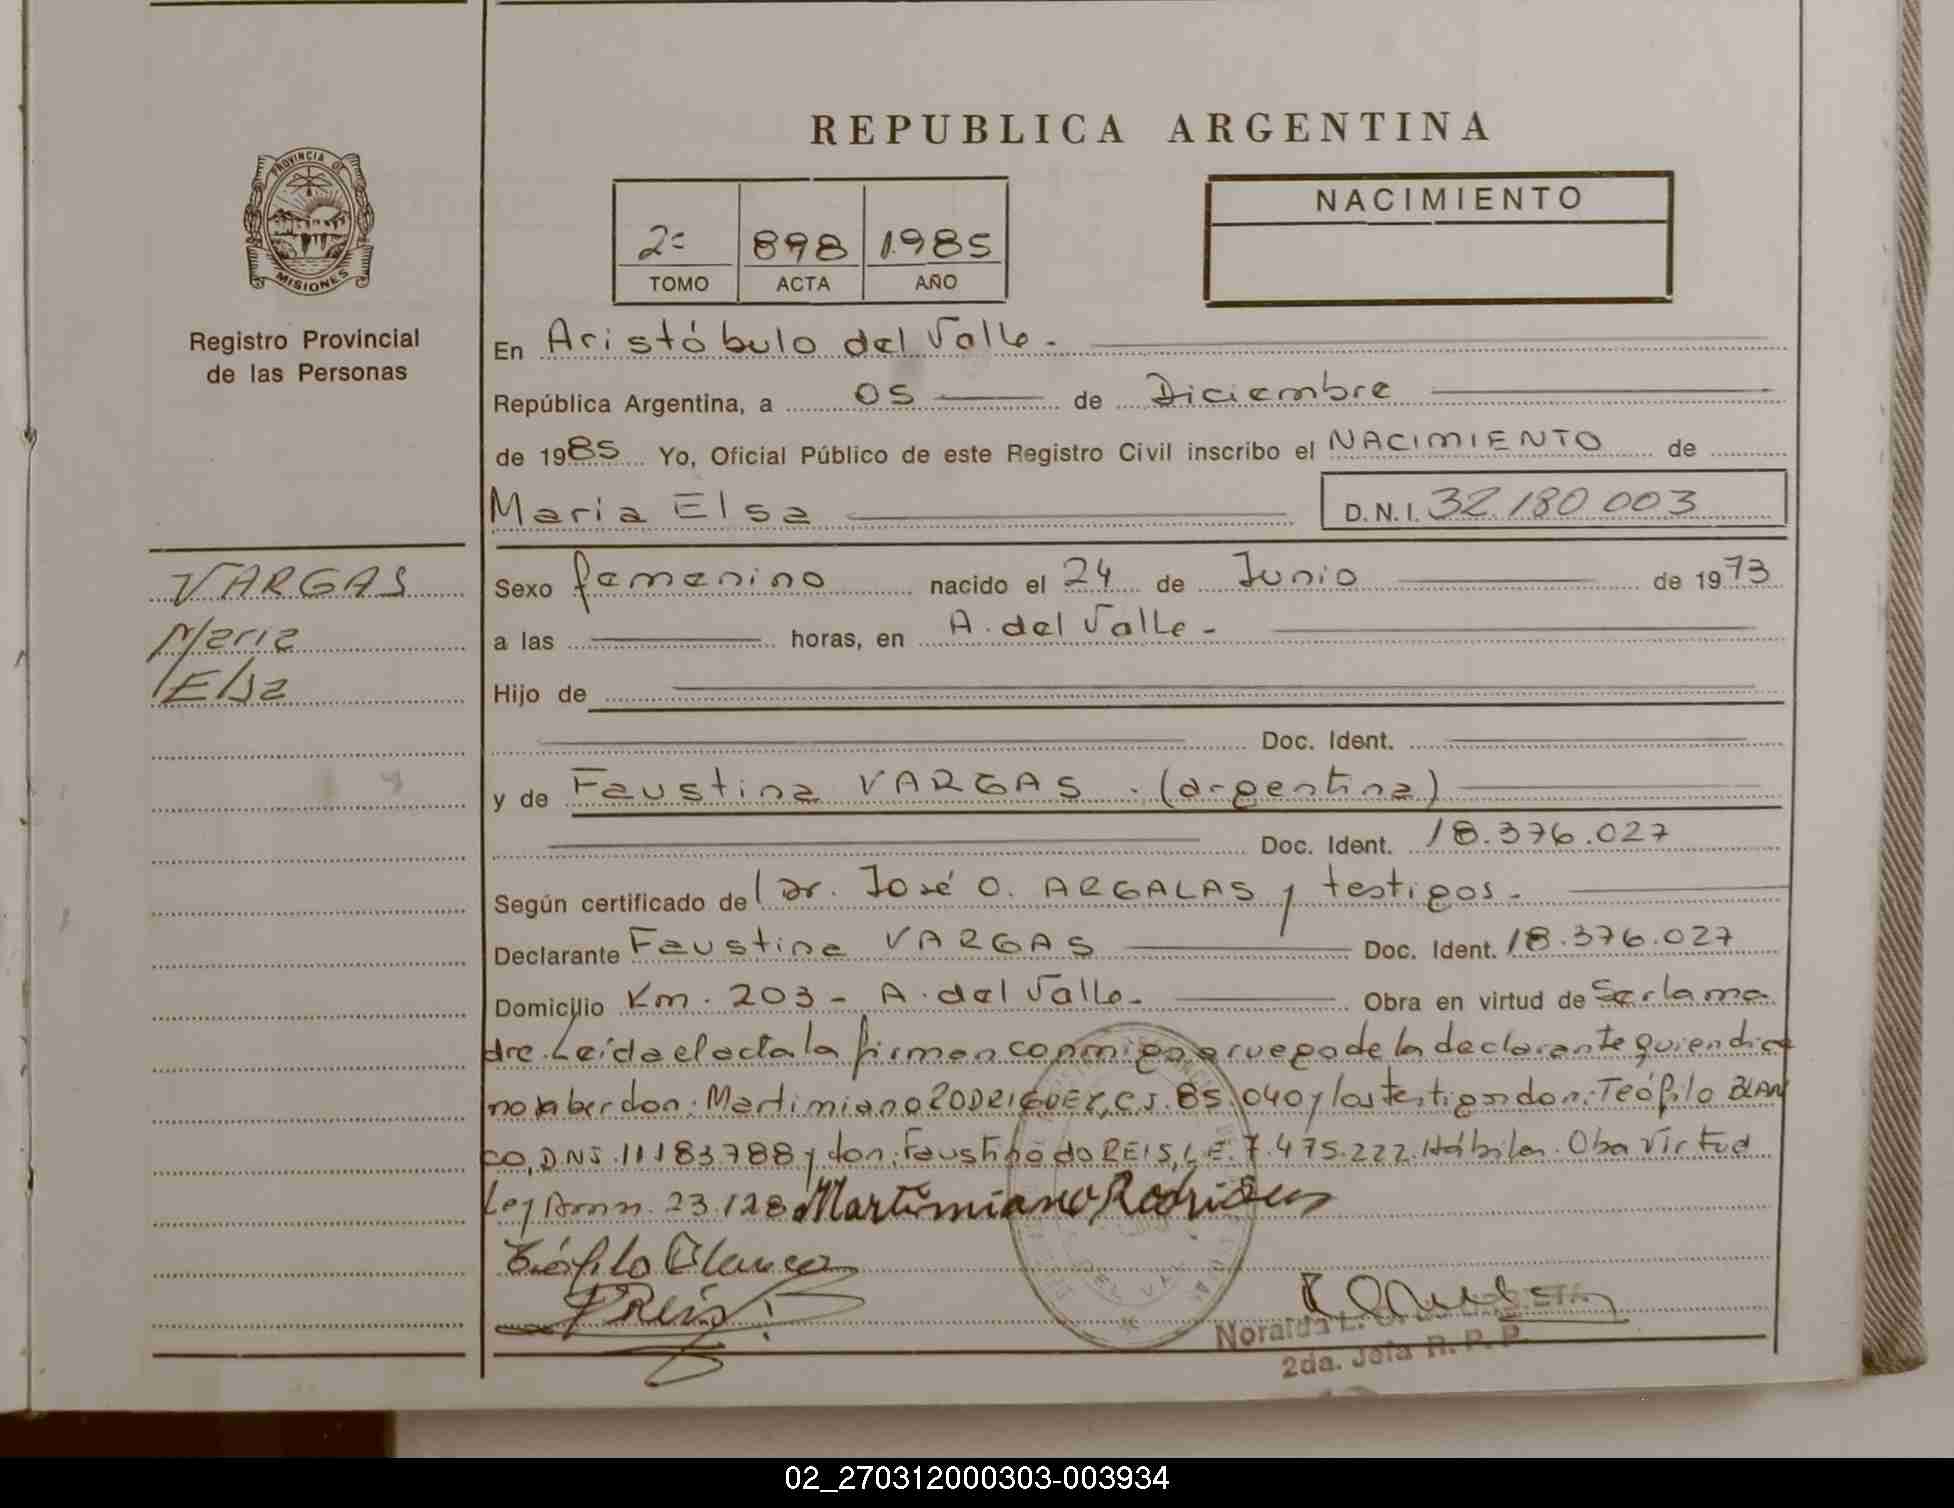 REPUBLICA ARGENTINA
PROVINCIA DE
MISIONES
Registro Provincial
de las Personas
NACIMIENTO
2º 898 1985
TOMO ACTA AÑO
En Aristóbulo del Valle.-
República Argentina, a 05 de Diciembre
de 1985 Yo, Oficial Público de este Registro Civil inscribo el NACIMIENTO de
Maria Elsa D.N.I. 32.180.003
VARGAS
Maria
Elsa
Sexo femenino nacido el 24 de Junio de 1973
a las horas, en A. del Valle.-
Hijo de
Doc. Ident.
y de Faustina VARGAS. (argentina)
Doc. Ident. 18.376.027
Según certificado de Dr. José O. ARGALAS y testigos.-
Declarante Faustina VARGAS Doc. Ident. 18.376.027
Domicilio Km. 203 - A. del Valle.- Obra en virtud de Ser la ma
dre. Leída el acta la firman conmigo a ruego de la declarante quien dice
no saber don: Martimiano RODRIGUEZ, C.I. 85.040 y los testigos don: Teófilo BLAN
CO, D.N.I. 11183.788 y don: Faustino do REIS, L.E. 7.475.222. Hábiles. Oba Virtud
Ley Amn. 23.128 Martimiano Rodriguez
Teófilo Blanco
F Reis
2da. Jefa R. P. P.
02_270312000303-003934